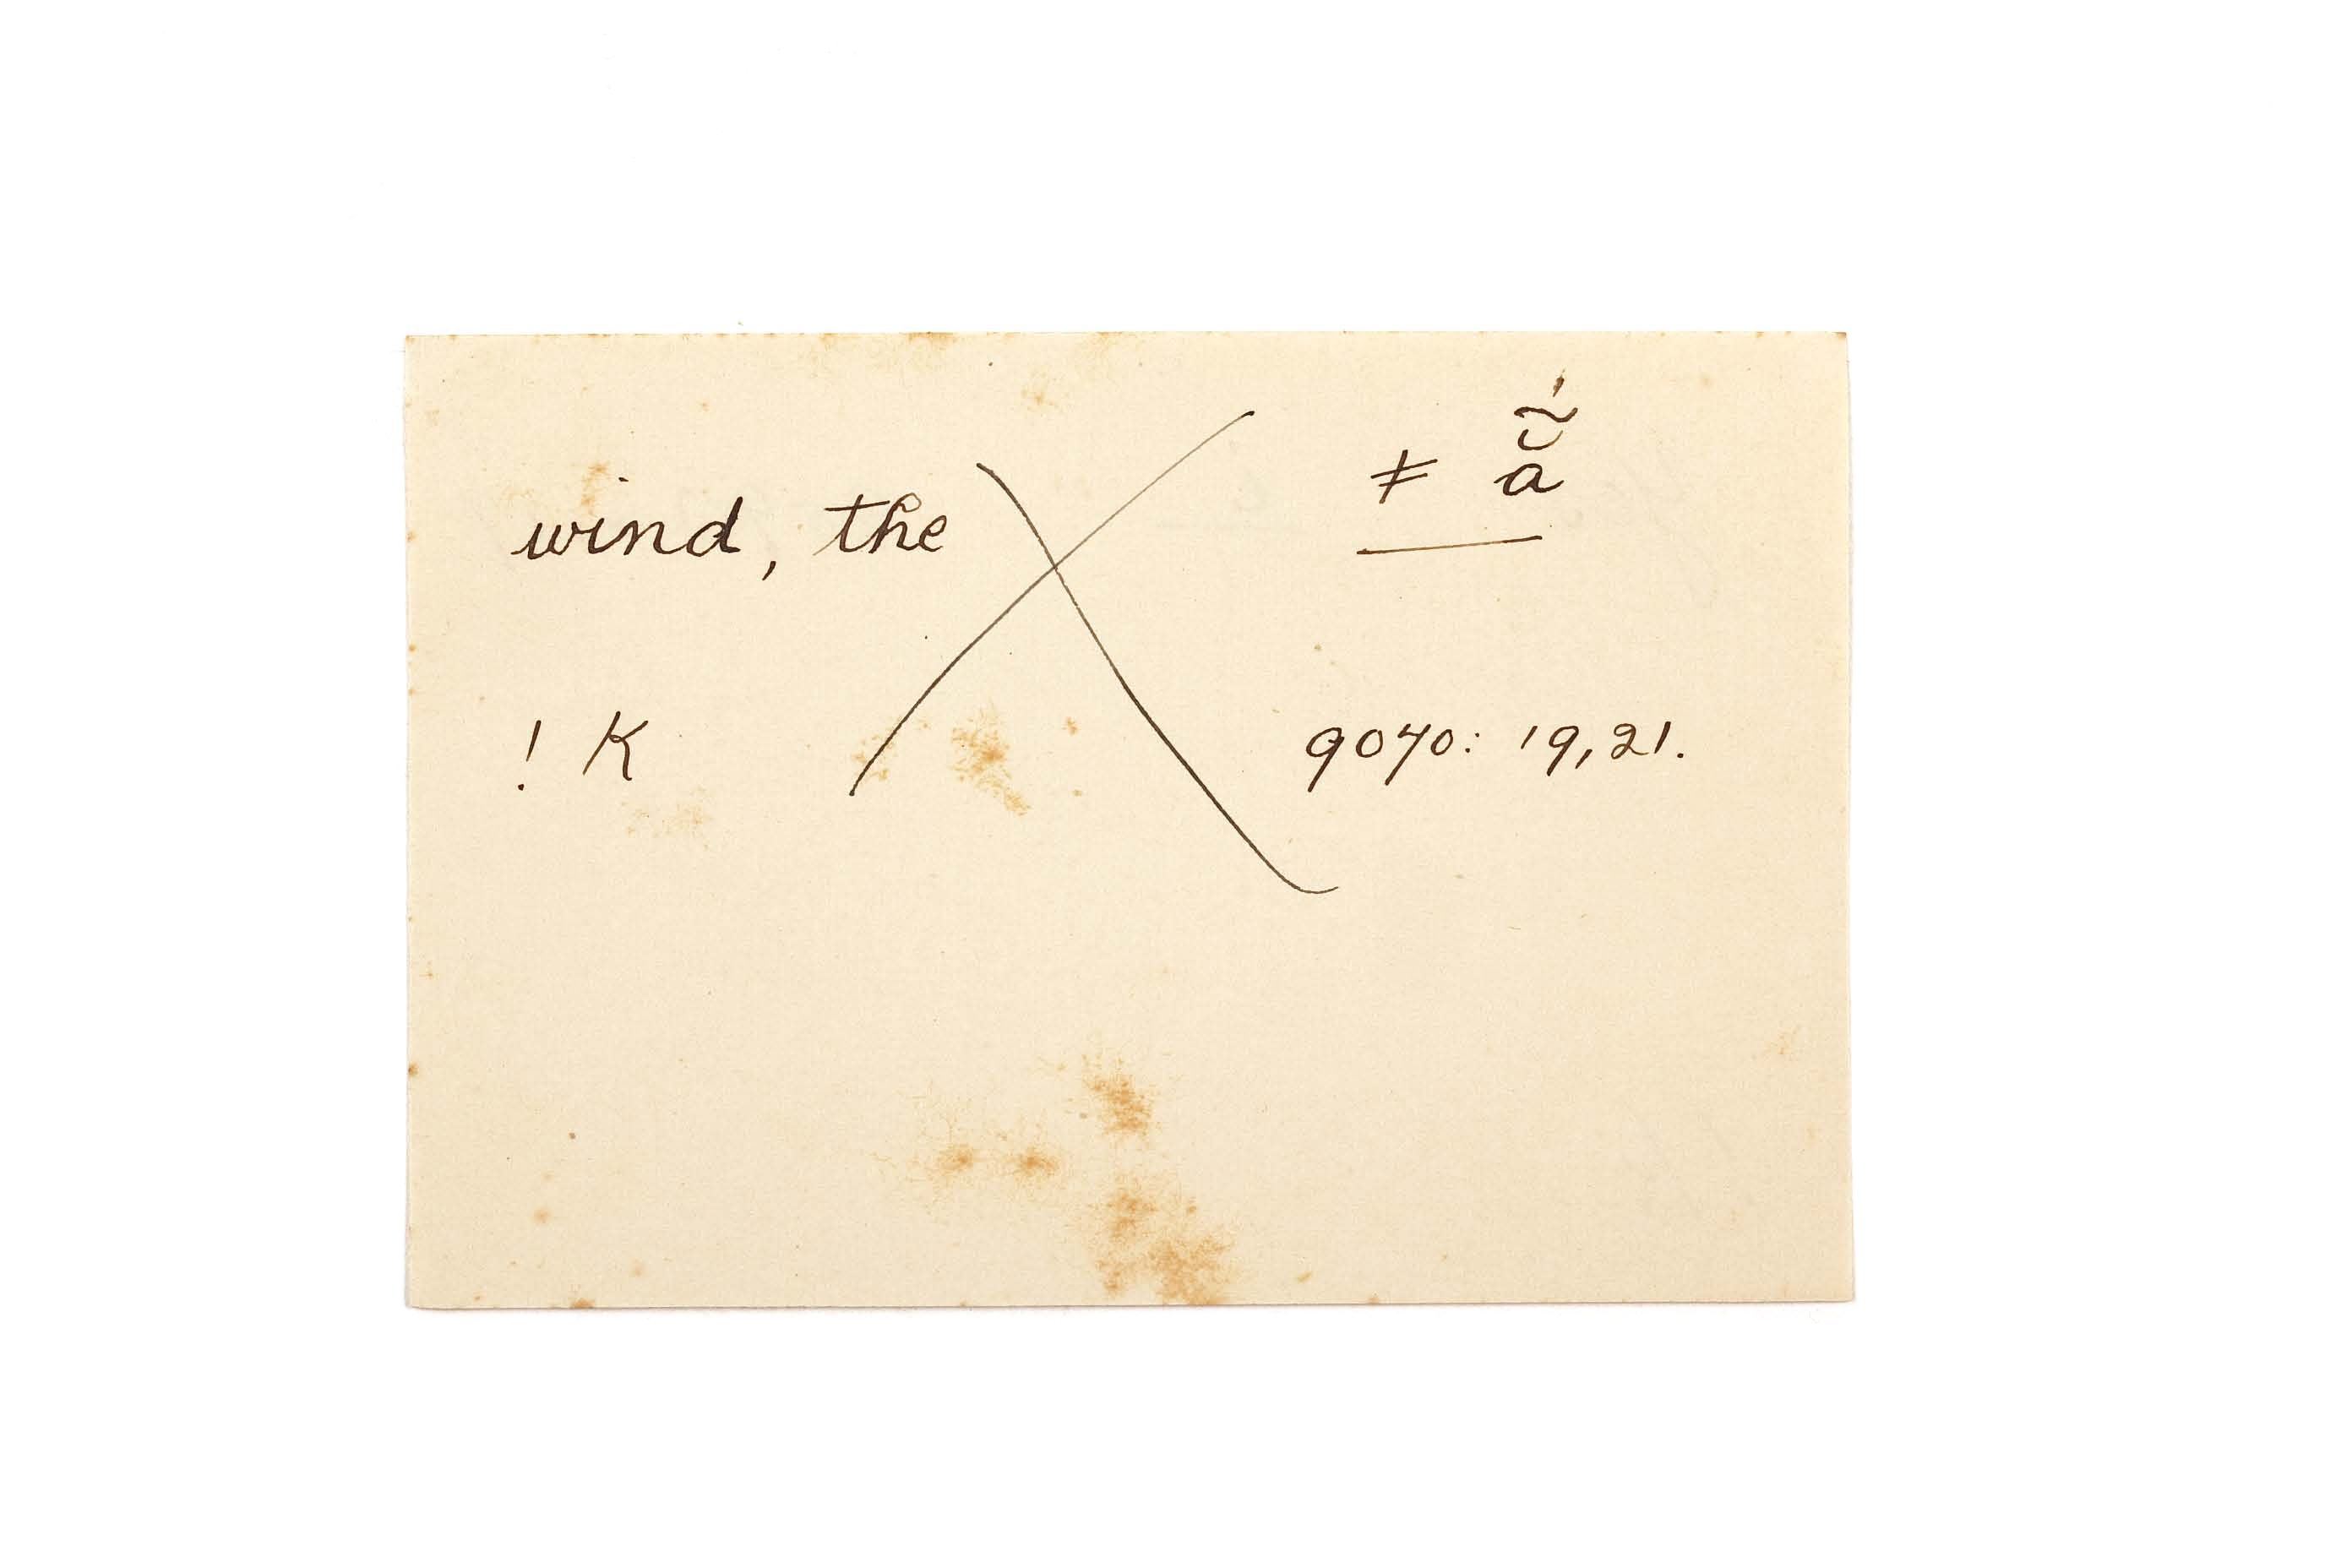 wind, the ǂ ẵ̰́
! K 9070: 19,21.